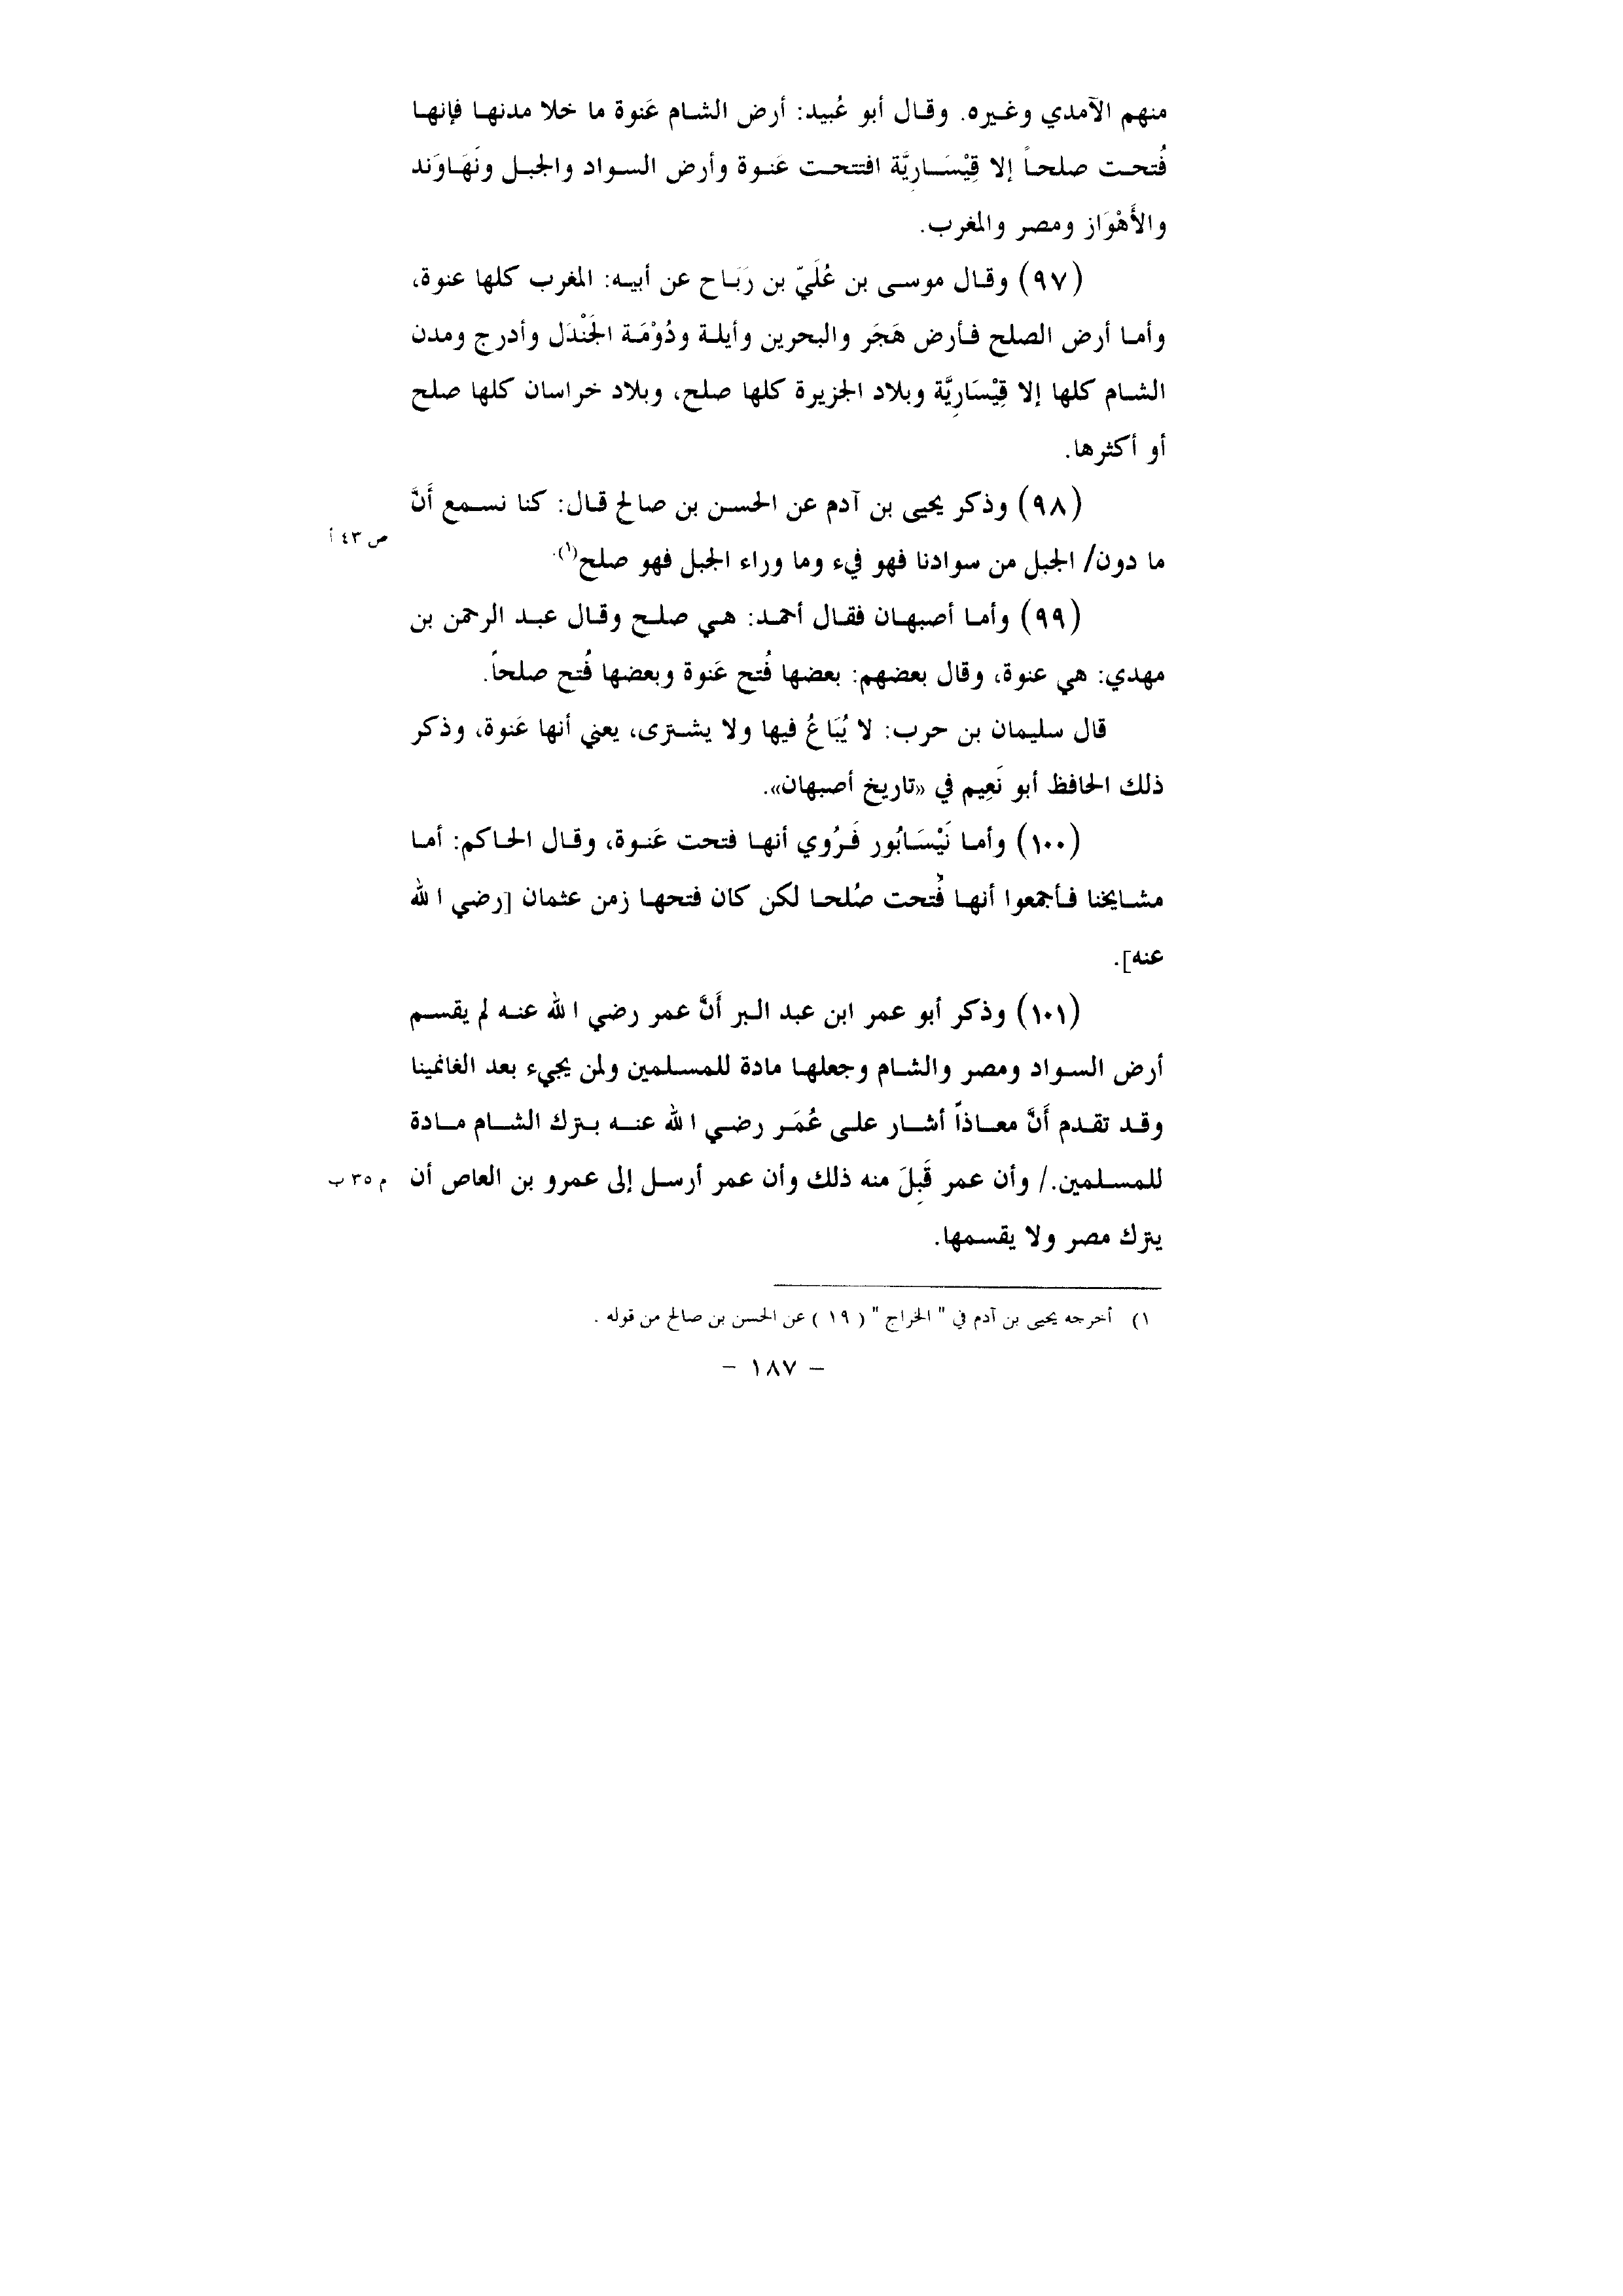 منهم الآمدي وغيره. وقال أبو عُبيد: أرض الشام عَنوة ما خلا مدنها فإنها
فُتحت صلحاً إلا قِيْسَارِيَّة افتتحت عَنوة وأرض السواد والجبل ونَهَاوَند
والأَهْوَاز ومصر والمغرب.
(٩٧) وقال موسى بن عُلَيّ بن رَبَاح عن أبيه: المغرب كلها عنوة،
وأما أرض الصلح فأرض هَجَر والبحرين وأيلة ودُوْمَة الجَنْدَل وأدرج ومدن
الشام كلها إلا قِيْسَارِيَّة وبلاد الجزيرة كلها صلح، وبلاد خراسان كلها صلح
أو أكثرها.
(٩٨) وذكر يحيى بن آدم عن الحسن بن صالح قال: كنا نسمع أَنَّ
ص ٤٣ أ
ما دون/ الجبل من سوادنا فهو فيء وما وراء الجبل فهو صلح(١).
(٩٩) وأما أصبهان فقال أحمد: هي صلح وقال عبد الرحمن بن
مهدي: هي عنوة، وقال بعضهم: بعضها فُتح عَنوة وبعضها فُتح صلحاً.
قال سليمان بن حرب: لا يُبَاعُ فيها ولا يشترى، يعني أنها عَنوة، وذكر
ذلك الحافظ أبو نَعِيم في «تاريخ أصبهان».
(١٠٠) وأما نَيْسَابُور فَرُوي أنها فتحت عَنوة، وقال الحاكم: أما
مشايخنا فأجمعوا أنها فُتحت صُلحا لكن كان فتحها زمن عثمان [رضي الله
عنه].
(١٠١) وذكر أبو عمر ابن عبد البر أَنَّ عمر رضي الله عنه لم يقسم
أرض السواد ومصر والشام وجعلها مادة للمسلمين ولمن يجيء بعد الغانمينا
وقد تقدم أَنَّ معاذاً أشار على عُمَر رضي الله عنه بترك الشام مادة
للمسلمين./ وأن عمر قَبِلَ منه ذلك وأن عمر أرسل إلى عمرو بن العاص أن
م ٣٥ ب
يترك مصر ولا يقسمها.
١) أخرجه يحيى بن آدم في " الخراج " ( ١٩ ) عن الحسن بن صالح من قوله .
– ١٨٧ –